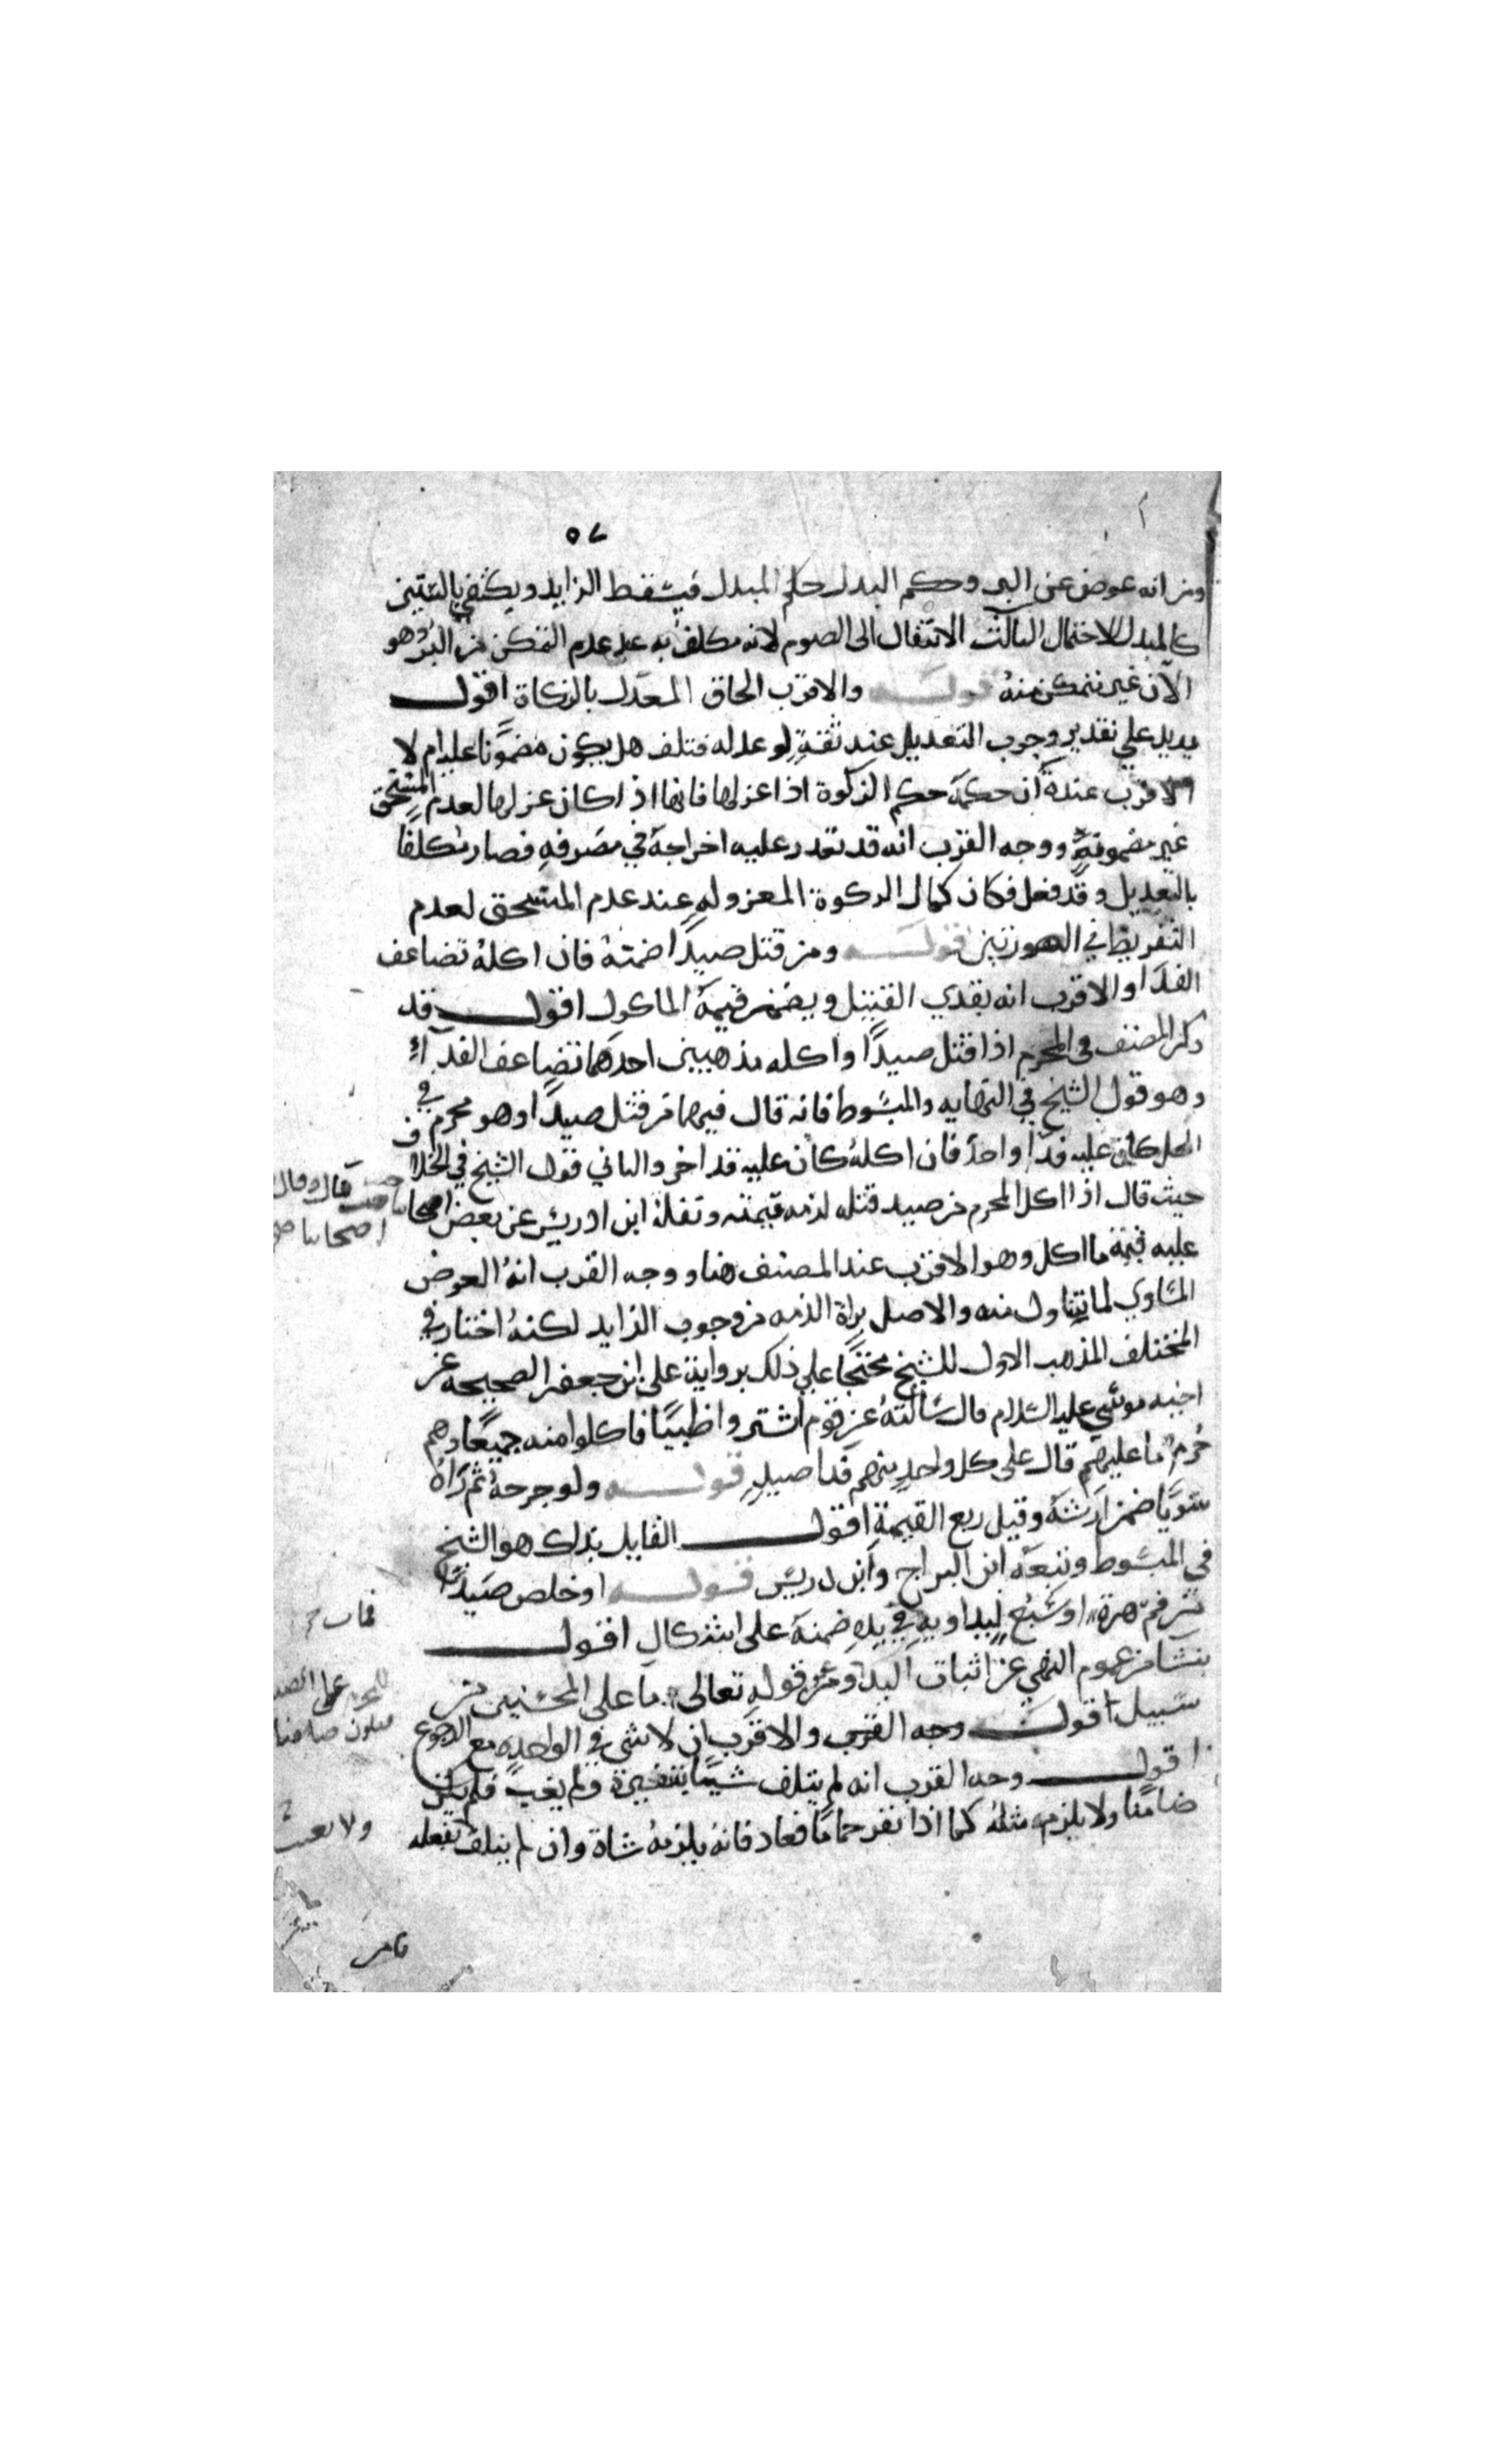 ٥٧
ومن انه عوض عن البر وحكم البدل حكم المبدل فيسقط الزايد ويكتفي بالستين
كالمبدل للاحتمال الثالث الانتقال الى الصوم لانه مكلف به عند عدم التمكن من البر وهو
الآن غير متمكن منه قوله والاقرب الحاق المعدل بالزكاة اقول
يريد على تقدير وجوب التعديل عند ثقة لو عدله فتلف هل يكون مضمونا عليه ام لا
الاقرب عنده ان حكمه حكم الزكوة اذا عزلها فانها اذا كان عزلها لعدم المستحق
غير مضمونة ووجه القرب انه قد تعذر عليه اخراجه في مصرفه فصار مكلفا
بالتعديل وقد فعل فكان كمال الزكوة المعزوله عند عدم المستحق لعدم
التفريط في الصورتين قوله ومن قتل صيدا ضمنه فان اكله تضاعف
الفدا والاقرب انه يفدي القتيل ويضمن قيمة الماكول اقول قد
ذكر المصنف في المحرم اذا قتل صيدا واكله مذهبين احدهما تضاعف الفدآء
وهو قول الشيخ في النهايه والمبسوط فانه قال فيهما من قتل صيدا وهو محرم في
الحل كان عليه فدا واحد فان اكله كان عليه فدا اخر والثاني قول الشيخ في الخلاف
حيث قال اذا اكل المحرم من صيد قتله لزمه قيمته ونقله ابن ادريس عن بعض اصحابنا
عليه قيمة ما اكل وهو الاقرب عند المصنف هنا ووجه القرب انه العوض
المساوي لما تناول منه والاصل براة الذمه من وجوب الزايد لكنه اختار في
المختلف المذهب الاول للشيخ محتجا على ذلك برواية على بن جعفر الصحيحة عن
اخيه موسى عليه السلام قال سالته عن قوم اشتروا ظبيا فاكلوا منه جميعا وهم
حرم ما عليهم قال على كل واحد منهم فدا صيد قوله ولو جرحه ثم رآه
سويا ضمن ارشه وقيل ربع القيمة اقول القايل بذلك هو الشيخ
في المبسوط وتبعه ابن البراج وابن ادريس قوله او خلص صيدا
من فم هرة او سبع ليداويه في يده ضمنه على اشكال اقول
ينشا من عموم النهي عن اثبات اليد ومن قوله تعالى ما على المحسنين من
سبيل اقول وجه القرب والاقرب ان لا شى في الواحده مع الرجوع
اقول وجه القرب انه لم يتلف شيئا بتنفيره ولم يغب فلم يكن
ضامنا ولا يلزمه مثله كما اذا نفر حماما فعاد فانه يلزمه شاة وان لم يتلف بفعله